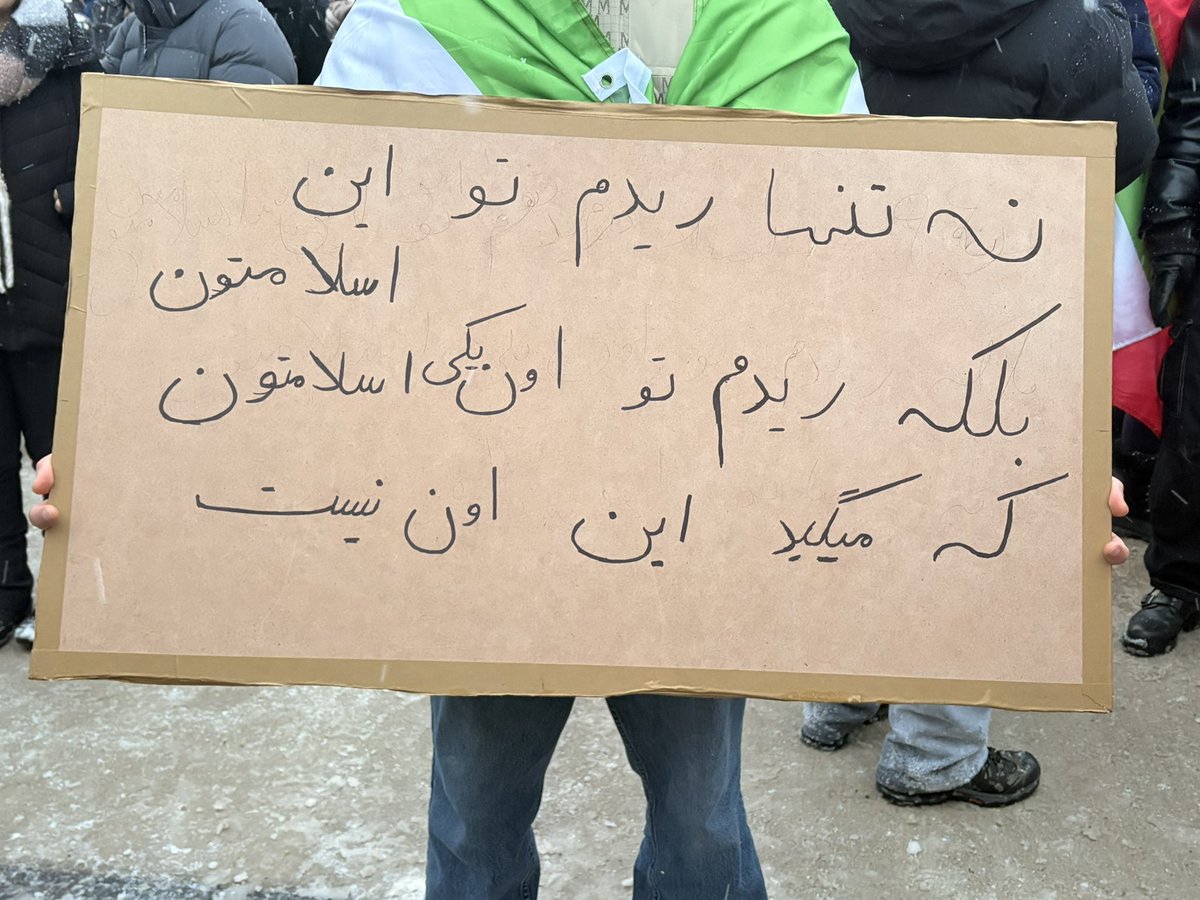 نه تنها ریدم تو این
اسلامتون
بلکه ریدم تو اون یکی اسلامتون
که میگید این اون نیست